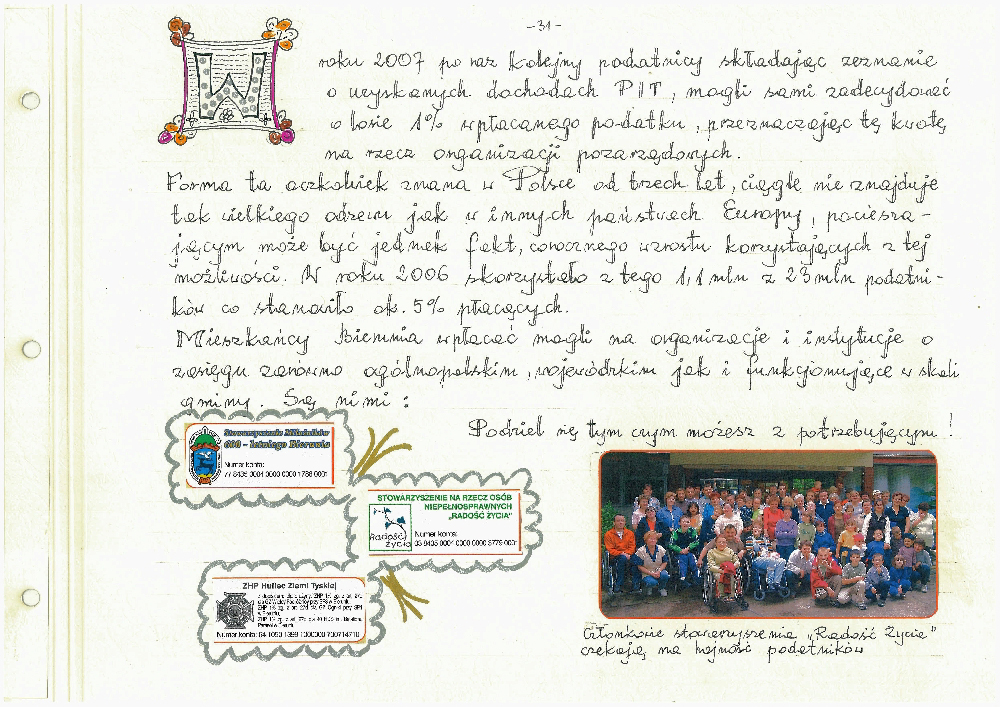 - 31 -
W
roku 2007 po raz kolejny podatnicy składając zeznanie
o uzyskanych dochodach PIT, mogli sami zadecydować
o losie 1% wpłacanego podatku, przeznaczając tę kwotę
na rzecz organizacji pozarządowych.
Forma ta aczkolwiek znana w Polsce od trzech lat, ciągle nie znajduje
tak wielkiego odzewu jak w innych państwach Europy, pociesza-
jącym może być jednak fakt, corocznego wzrostu korzystających z tej
możliwości. W roku 2006 skorzystało z tego 1,1 mln z 23 mln podatni-
ków co stanowiło ok. 5% płacących.
Mieszkańcy Bierunia wpłacać mogli na organizacje i instytucje o
zasięgu zarówno ogólnopolskim, wojewódzkim jak i funkcjonujące w skali
gminy. Są nimi :
Podziel się tym czym możesz z potrzebującym !
Stowarzyszenie Miłośników
600 - letniego Bierunia
Numer konta:
77 8435 0004 0000 0000 1788 0001
STOWARZYSZENIE NA RZECZ OSÓB
NIEPEŁNOSPRAWNYCH
„RADOŚĆ ŻYCIA"
Radość Życia
Numer konta:
03 8435 0004 0000 0000 3779 0001
ZHP Hufiec Ziemi Tyskiej
Numer konta: 64 1050 1399 1000
Członkowie stowarzyszenia „Radość Życia"
czekają na hojność podatników